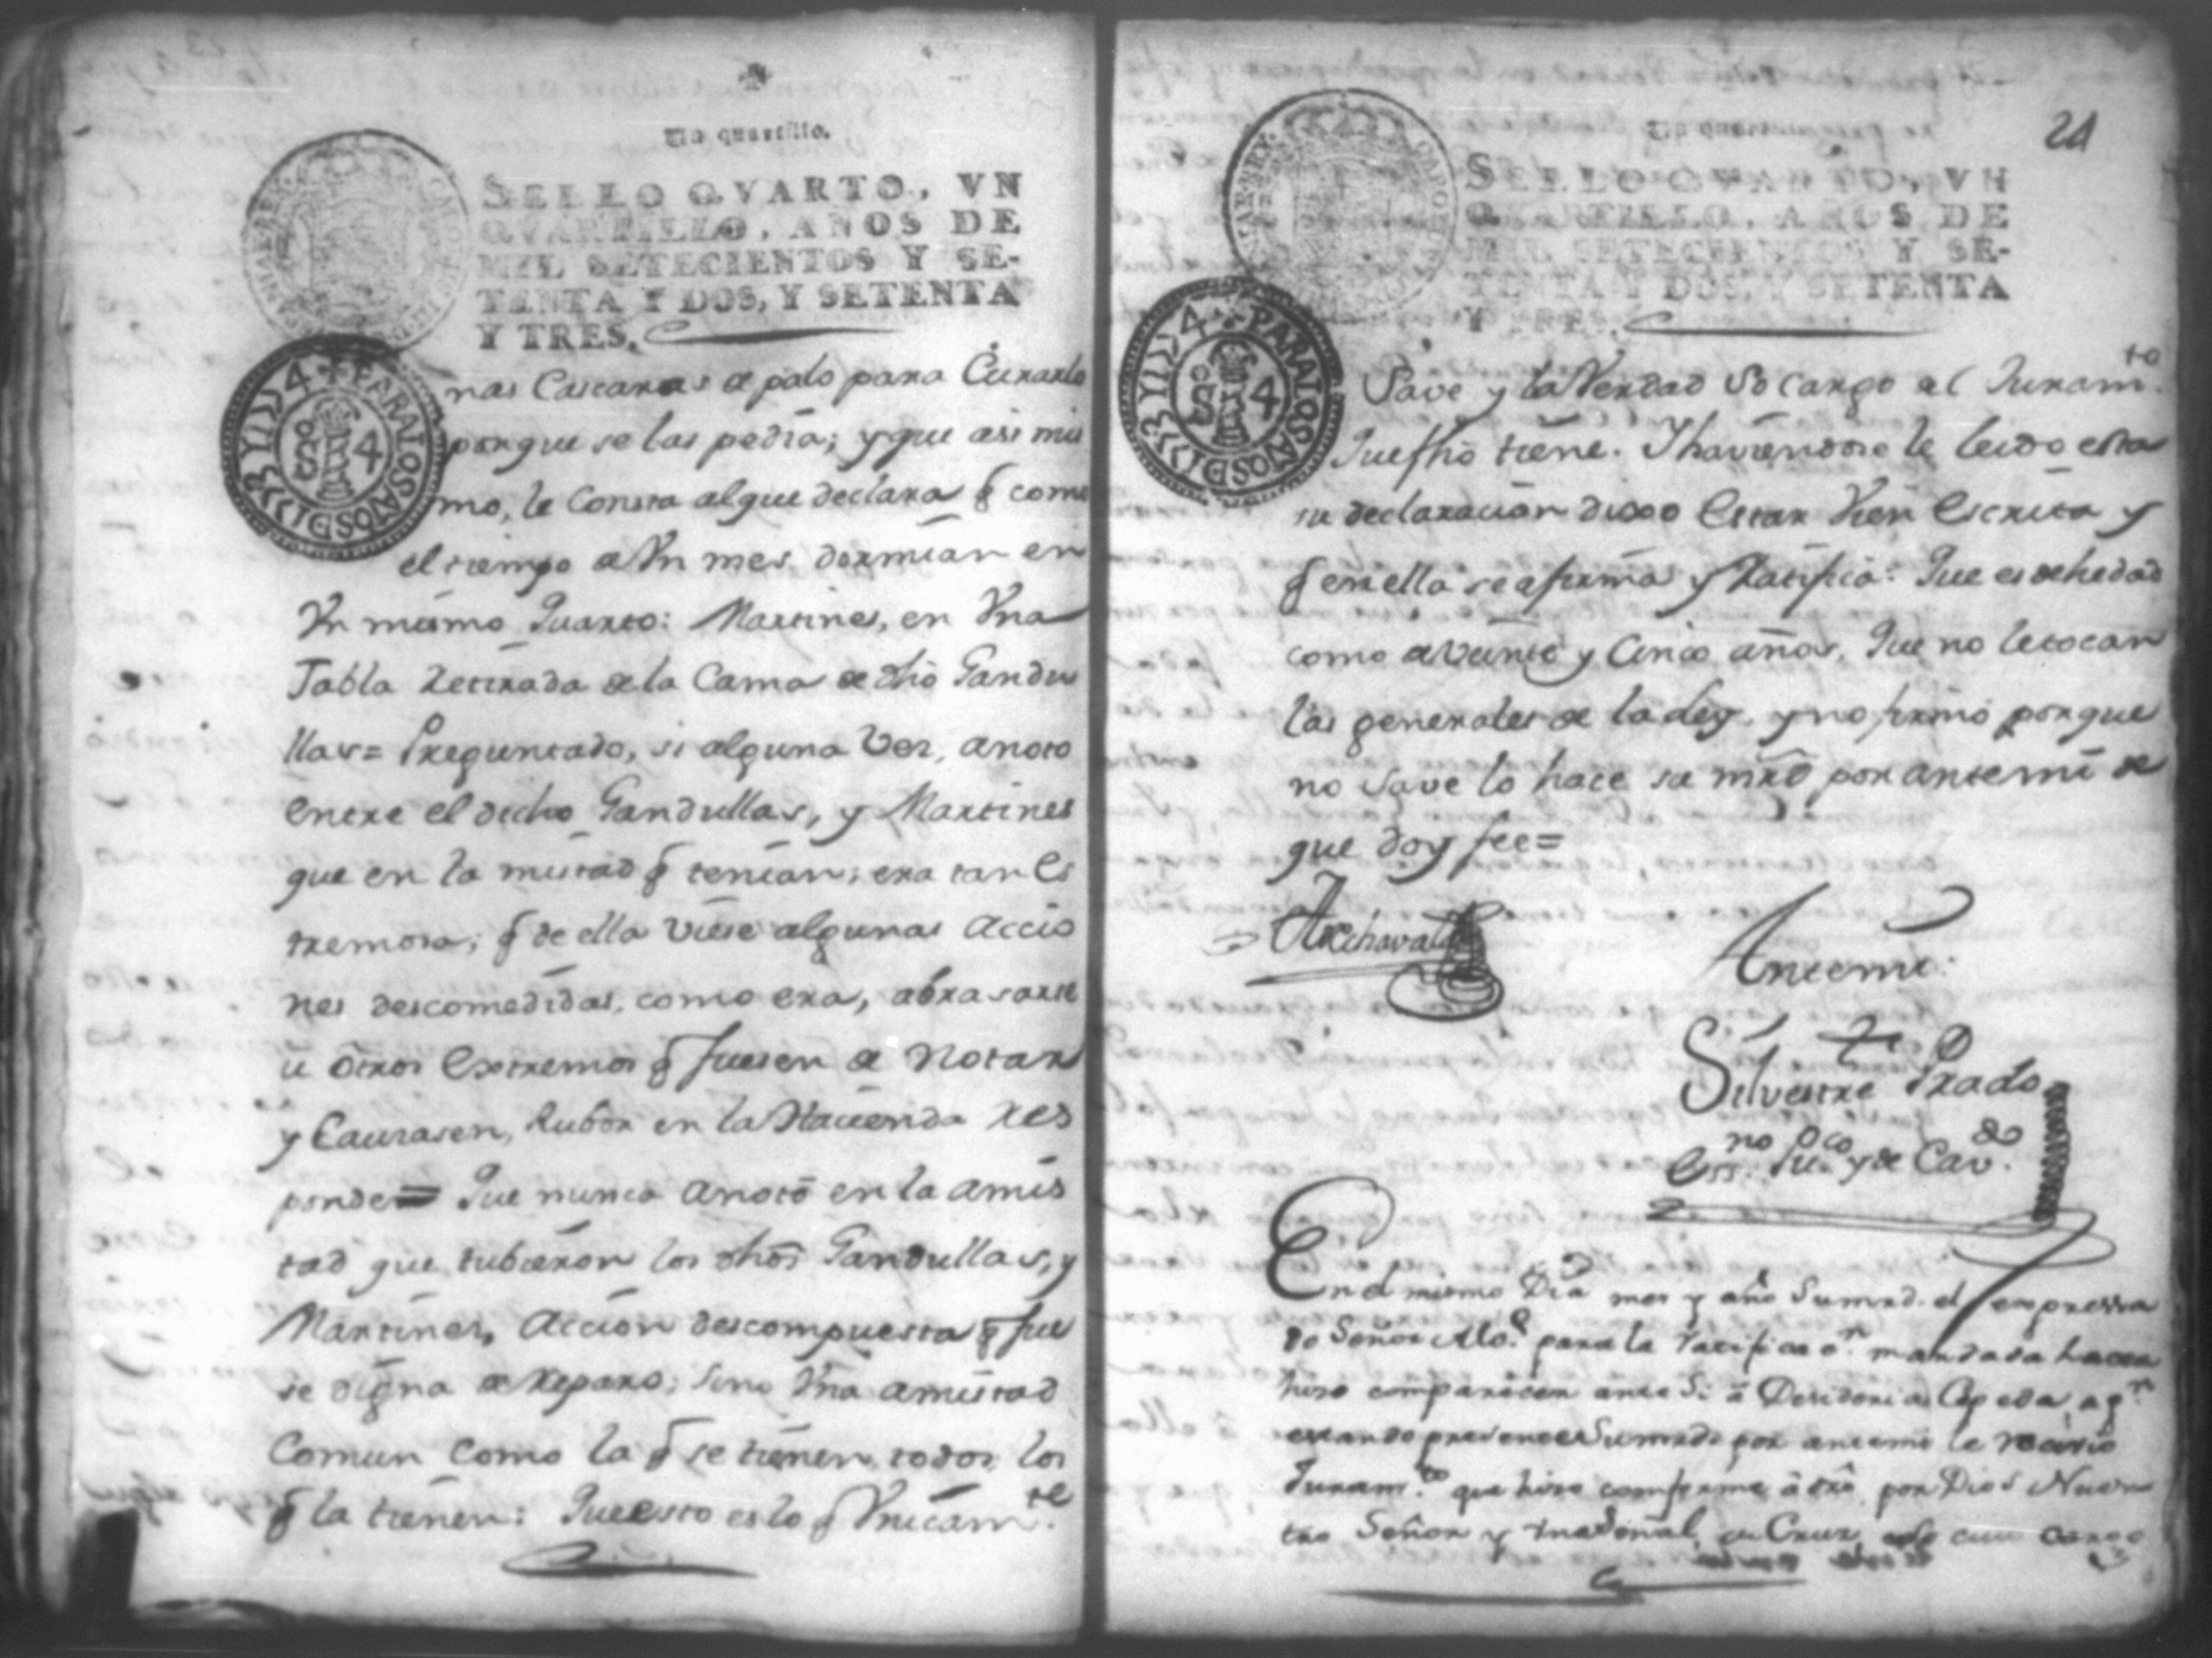 Un quartillo.
SELLO QVARTO, VN
QVARTILLO, AÑOS DE
MIL SETECIENTOS Y SE-
TENTA Y DOS, Y SETENTA
Y TRES.
PARA LOS AÑOS D 1773 Y 1774
So 4
nas Cascaras de palo para Curarlo
porque se las pedia; y que asi mis
mo, le Consta al que declara q̃ como
el tiempo de Vn mes dormian en
Vn mismo Quarto: Martines, en Vna
Tabla Retirada de la Cama de dho Gandu
llas= Preguntado, si alguna Vez, anoto
entre el dicho Gandullas, y Martines
que en la mistad q̃ tenian; era tan Es
tremosa; q̃ de ella Viese algunas accio
nes descomedidas, como era, abrasarse
u otros Extremos q̃ fuesen de Notar
y Causasen, Rubor en la Hacienda res
ponde= Que nunca anotó en la amis
tad que tubieron los dhos Gandullas, y
Martines, accion descompuesta q̃ fue
se digna de Reparo; sino Vna amistad
Comun como la q̃ se tienen todos los
q̃ la tienen: Que esto es lo q̃ Vnicam.te
21
SELLO QVARTO, VN
QVARTILLO, AÑOS DE
MIL SETECIENTOS Y SE-
TENTA Y DOS, Y SETENTA
Y TRES.
PARA LOS AÑOS D 1773 Y 1774
So 4
Save y la Verdad So cargo al Juram.to
Que fho tiene. Y haviendose le leido esta
su declaracion dixo Estar Vien Escrita y
q̃ en ella se afirma y Ratifica: Que es de hedad
como de veinte y Cinco años, Que no le tocan
las generales de la Ley, y no firmó porque
no Save lo hace su mrd por antemi de
que doy fee=
Archavala
Antemi:
Silvestre Prado
Ess.no Pu.co y de Cav.do
En el mismo Dia mes y año Su mrd. el expressa
do Señor Alc.e para la ratificac.n mandada hacer
hiso comparecer ante Si à Desiderio Cepeda, a q.n
estando presente Su mrd por antemi le recivió
Juram.to que hiso conforme à dro por Dios Nues
tro Señor y una Señal de Cruz, So cuio cargo